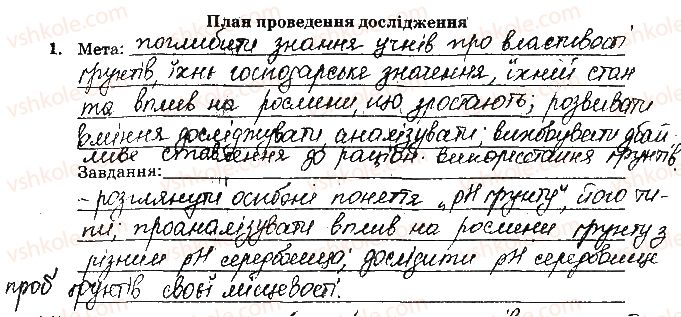 План проведення дослідження
1. Мета: поглибити знання учнів про властивості
ґрунтів, їхнє господарське значення, їхній стан
та вплив на рослини, що зростають; розвивати
вміння досліджувати аналізувати; виховувати дбай-
ливе ставлення до раціон. використання ґрунтів.
Завдання:
- розглянути поняття "pH ґрунту", його ти-
пи; проаналізувати вплив на рослини ґрунту з
різним pH середовища; дослідити pH середовище
проб ґрунтів своєї місцевості.